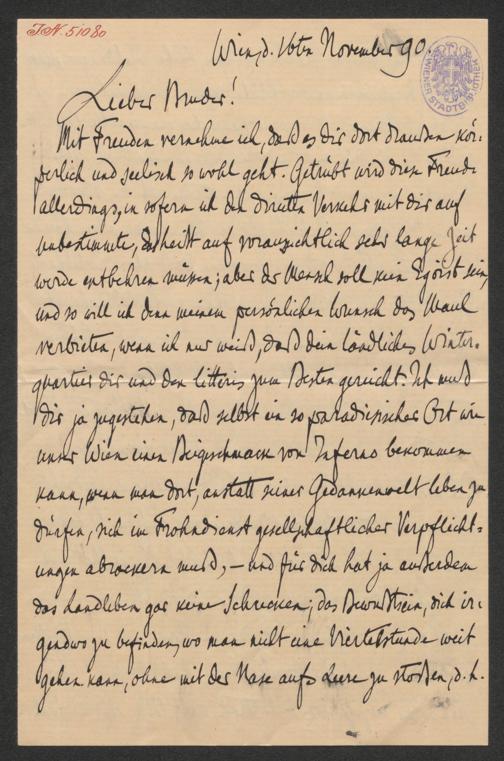 J.N. 51080
Wien, d. 16ten November 90.
WIENER STADTBIBLIOTHEK
Lieber Bruder!
Mit Freuden vernehme ich, daß es dir dort draußen kör-
perlich und seelisch so wohl geht. Getrübt wird diese Freude
allerdings, in sofern ich den direkten Verkehr mit dir auf
unbestimmte, das heißt auf voraussichtlich sehr lange Zeit
werde entbehren müssen; aber der Mensch soll kein Egoist sein,
und so will ich denn meinem persönlichen Wunsch das Maul
verbieten, wenn ich nur weiß, daß dein ländliches Winter-
quartier dir und den litteris zum Besten gereicht. Ich muß
dir ja zugestehen, daß selbst ein so paradiesischer Ort wie
unser Wien einen Beigeschmack von Inferno bekommen
kann, wenn man dort, anstatt seiner Gedankenwelt leben zu
dürfen, sich im Frohndienst gesellschaftlicher Verpflicht-
ungen abrackern muß, – und für dich hat ja außerdem
das Landleben gar keine Schrecken; das Bewußtsein, dich ir-
gendwo zu befinden, wo man nicht eine Viertelstunde weit
gehen kann, ohne mit der Nase aufs Leere zu stoßen, d. h.